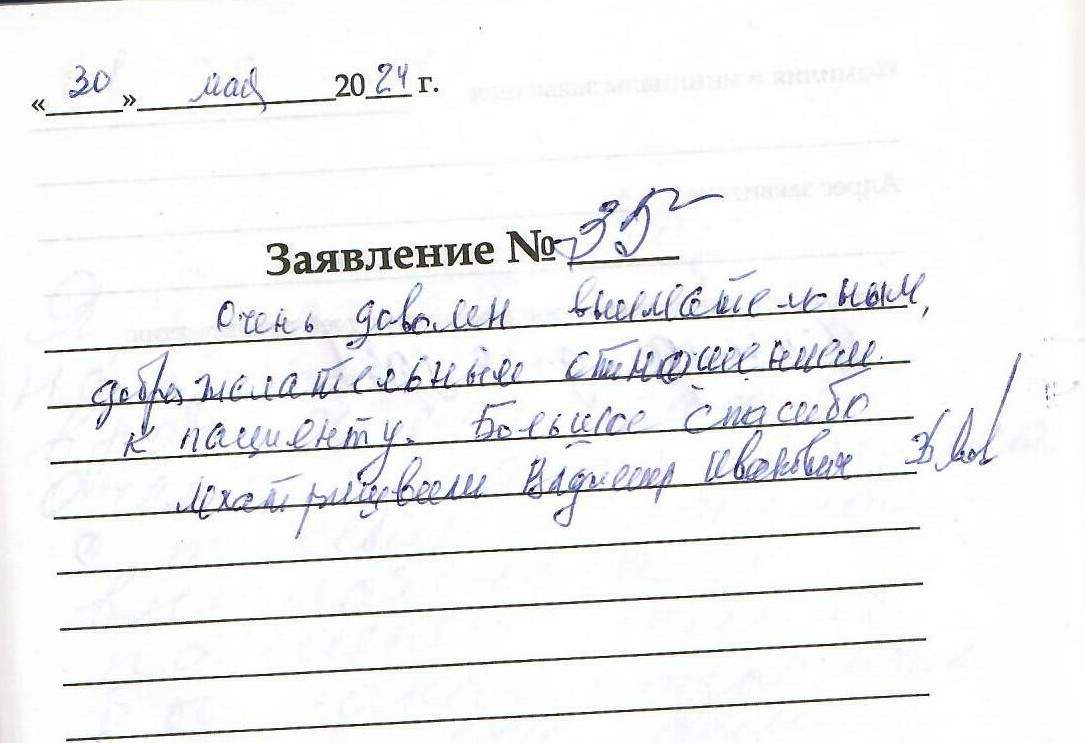 «30» мая 2024 г.
Заявление № 35
Очень доволен внимательным,
доброжелательным отношением
к пациенту. Большое спасибо
Владимир Иванович